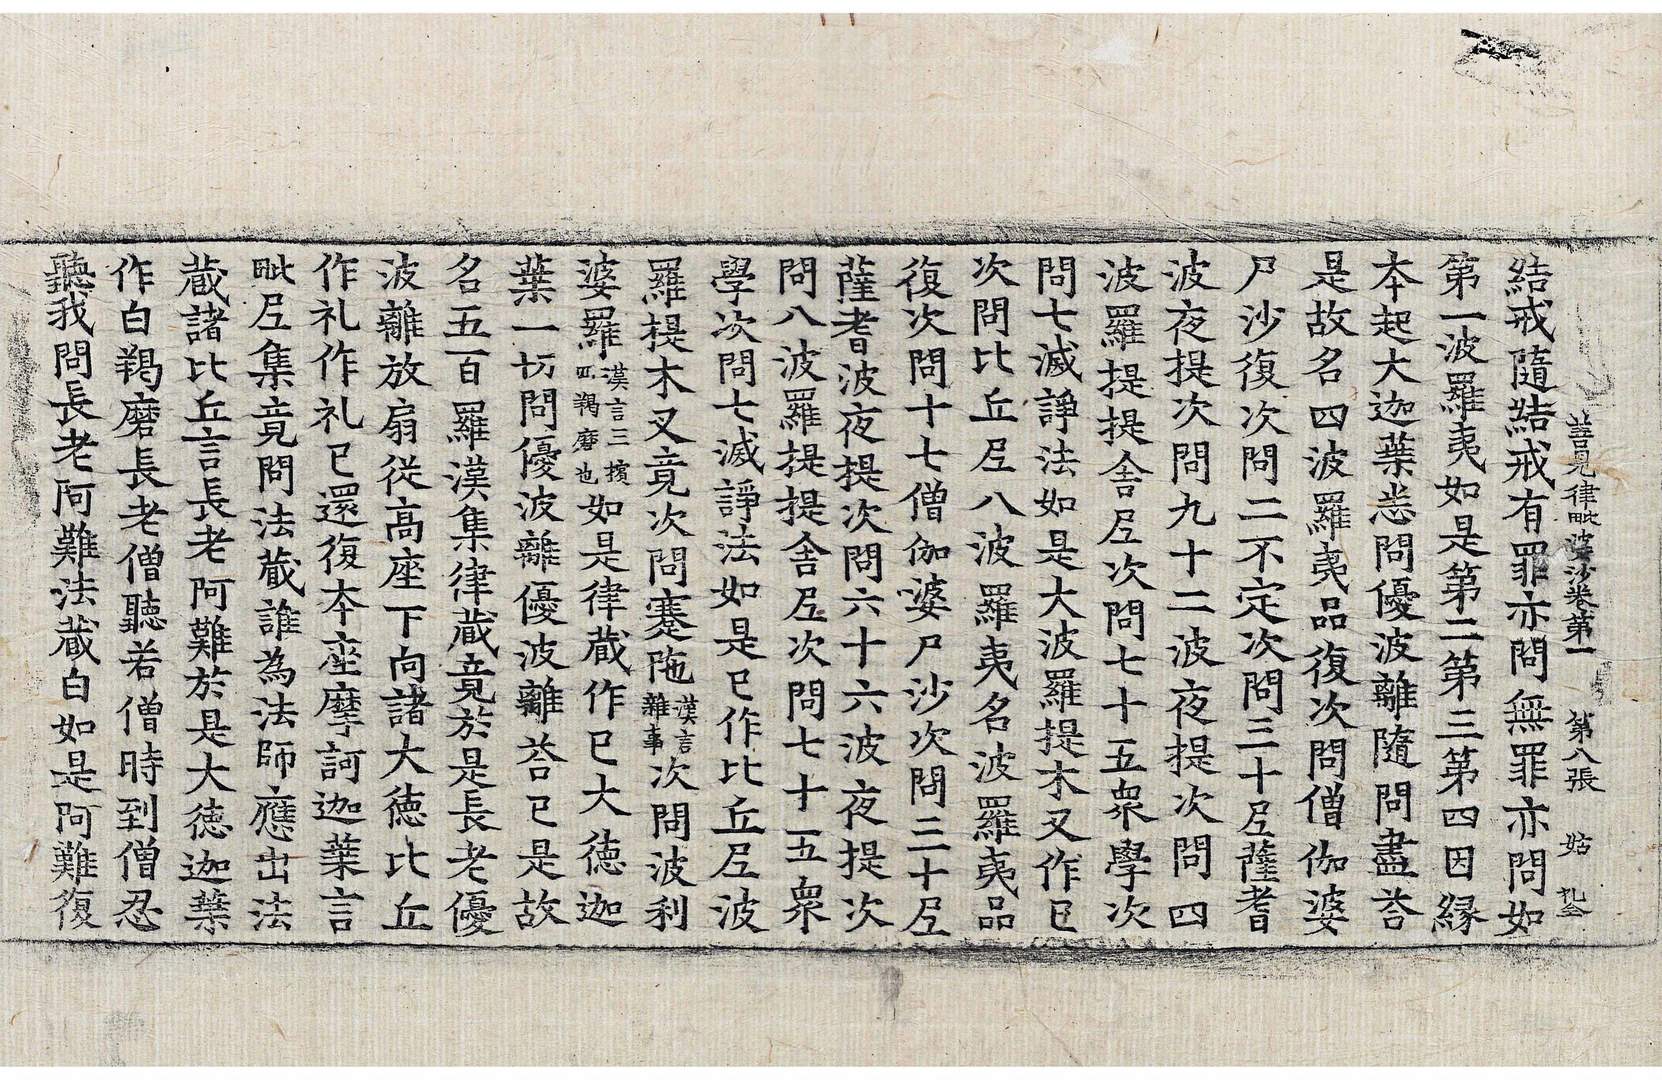 善見律毗婆沙卷第一　第八張　姑
結戒隨結戒有罪亦問無罪亦問如
第一波羅夷如是第二第三第四因緣
本起大迦葉悉問優波離隨問盡荅
是故名四波羅夷品復次問僧伽婆
尸沙復次問二不定次問三十尼薩耆
波夜提次問九十二波夜提次問四
波羅提提舍尼次問七十五衆學次
問七滅諍法如是大波羅提木叉作已
次問比丘尼八波羅夷名波羅夷品
復次問十七僧伽婆尸沙次問三十尼
薩耆波夜提次問六十六波夜提次
問八波羅提提舍尼次問七十五衆
學次問七滅諍法如是已作比丘尼波
羅提木叉竟次問蹇陁漢言雜事次問波利
婆羅漢言三擯四羯磨也如是律藏作已大德迦
葉一切問優波離優波離荅已是故
名五百羅漢集律藏竟於是長老優
波離放扇從高座下向諸大德比丘
作礼作礼已還復本座摩訶迦葉言
毗尼集竟問法藏誰為法師應出法
藏諸比丘言長老阿難於是大德迦葉
作白羯磨長老僧聽若僧時到僧忍
聽我問長老阿難法藏白如是阿難復